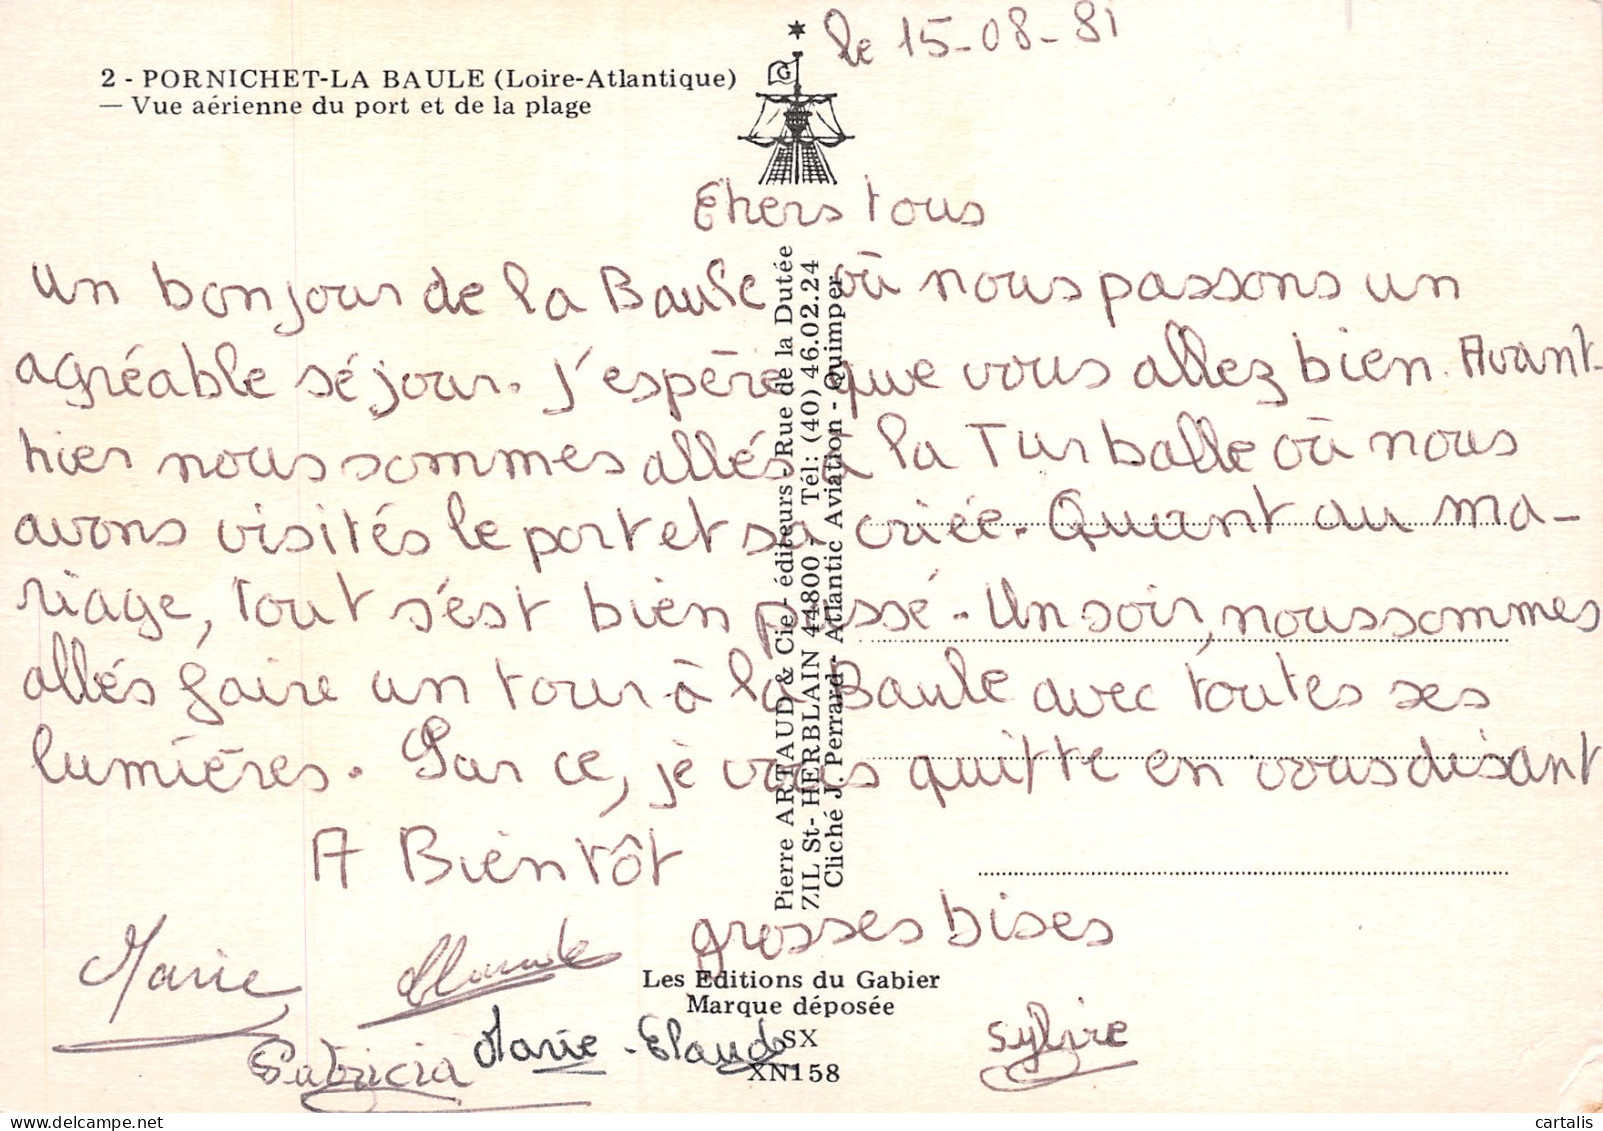 le 15-08-81
2 - PORNICHET-LA BAULE (Loire-Atlantique)
— Vue aérienne du port et de la plage
G
Chers tous
Un bonjour de la Baule où nous passons un
agréable séjour. J'espère que vous allez bien. Avant-
hier nous sommes allés à la Turballe où nous
avons visités le port et sa criée. Quant au ma-
riage, tout s'est bien passé. Un soir, nous sommes
allés faire un tour à la Baule avec toutes ses
lumières. Sur ce, je vous quitte en vous disant
A Bientôt
grosses bises
Marie Claude
Patricia Marie-Claude Sylvie
Pierre ARTAUD & Cie - éditeurs - Rue de la Dutée
ZIL St-HERBLAIN 44800 - Tél: (40) 46.02.24
Cliché J. Perrard - Atlantic Aviation - Quimper
Les Editions du Gabier
Marque déposée
SX
XN158
cartalis